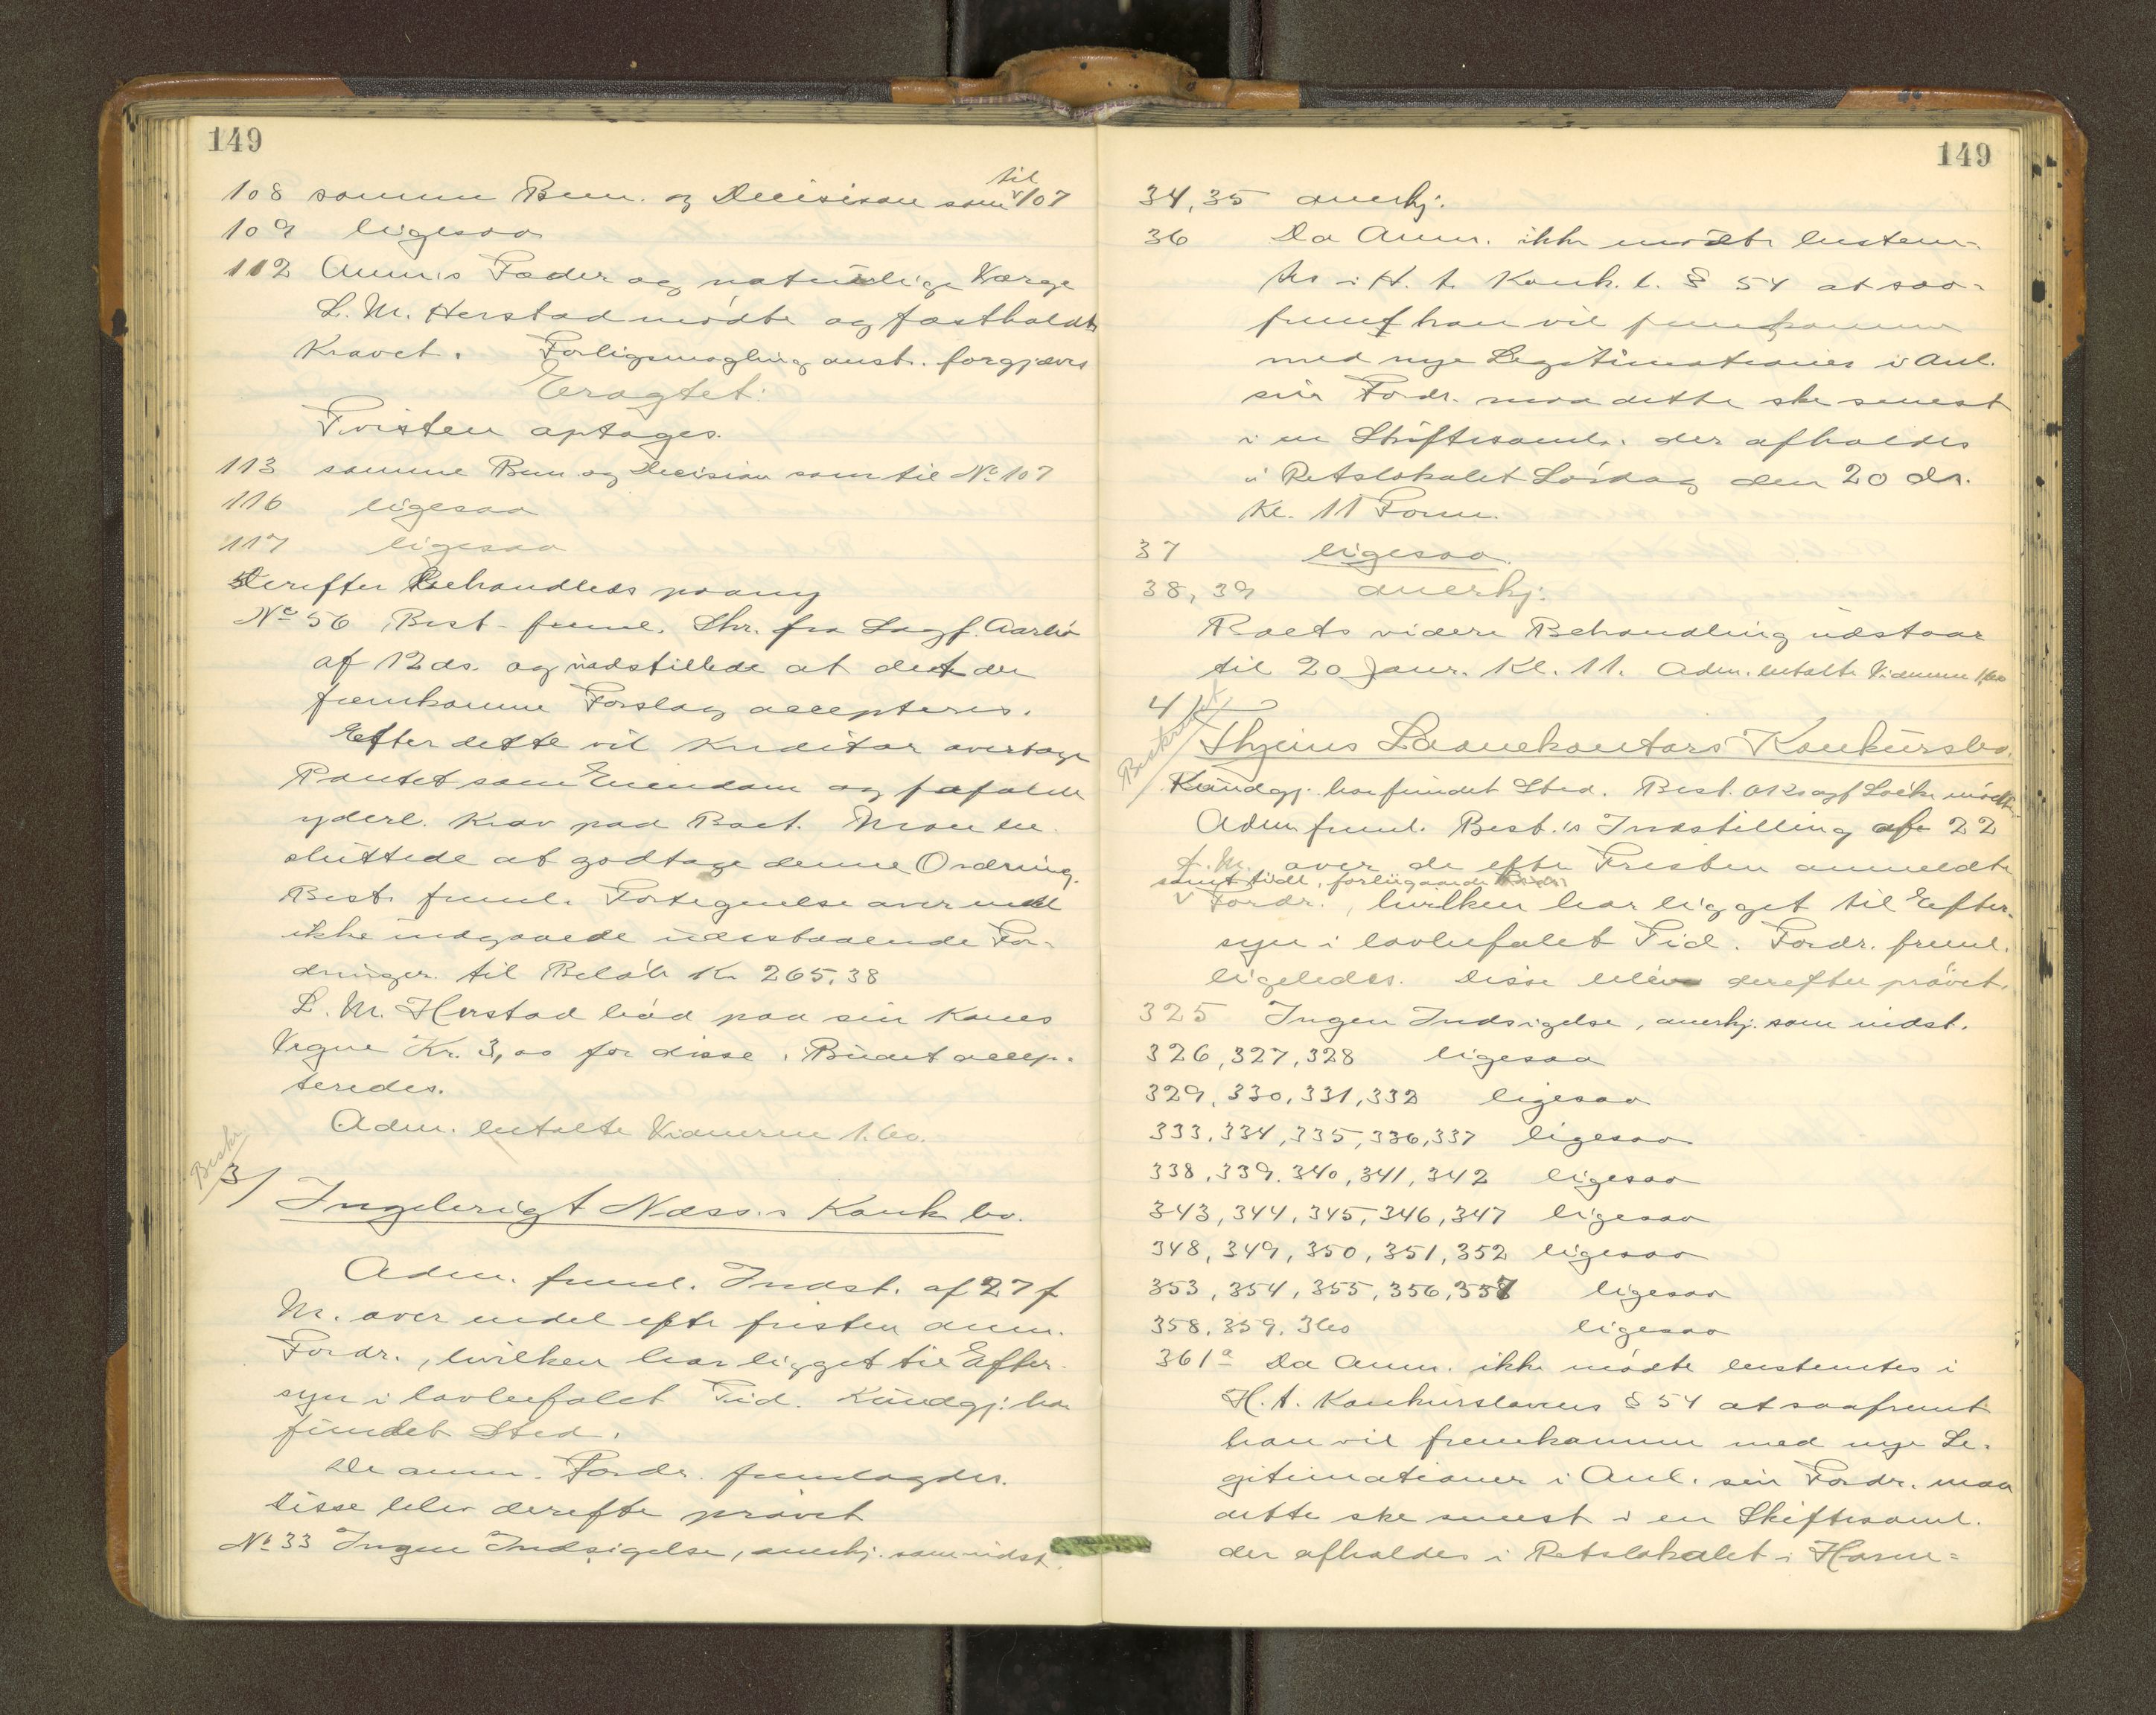 149
108 samme Bem. og Decision som til 107
109 ligesaa
112 Anm.s Fader og naturlige Værge
L. M. Herstad mødte og fastholdt
Kravet. Forligsmægling anst. forgjæves
Eragtet:
Tvisten optages.
113 samme Bem og Decision som til No 107
116 ligesaa
117 ligesaa
Derefter Behandledes paany
No 56 Best. freml. Skr. fra Sagf. Aarlie
af 12 ds. og indstillede at det der
fremkomne Forslag accepteres.
Efter dette vil Kreditor overtage
Pantet som Eiendom og frafalde
yderl. Krav paa Boet. Man be
sluttede at godtage denne Ordning.
Best. freml. Fortegnelse over endel
ikke indgaaede udestaaende For-
dringer til Beløb Kr 265.38
L. M. Herstad bød paa sin Kones
Vegne Kr. 3,00 for disse. Budet accep-
teredes.
Adm. betalte Vidnerne 1.60.
Beskr.
3/
Ingebrigt Næss.s Konk bo.
Adm. freml. Indst. af 27 f
M. over endel efter fristen anm.
Fordr., hvilken har ligget til Efter-
syn i lovbefalet Tid. Kundgj. har
fundet Sted.
De anm. Fordr. fremlagdes.
Disse blev derefter prøvet
No 33 Ingen Indsigelse, anerkj. som indst.
149
34, 35 anerkj.
36 Da Anm. ikke mødte bestem-
tes i H. t. Konk. l. § 54 at saa-
fremt han vil fremkomme
med nye Legitimationer i Anl.
sin Fordr. maa dette ske senest
i en Skiftesaml. der afholdes
i Retslokalet Lørdag den 20 ds.
Kl. 11 Form.
37 ligesaa
38, 39 anerkj.
Boets videre Behandling udstaar
til 20 Janr. Kl. 11. Adm. betalte Vidnerne 1,60
4/
Beskrevet
Thjems Laanekontors Konkursbo.
Kundgj. har fundet Sted. Best. mødte
Adm freml. Best.s Indstilling af 22
f. M. over de efter Fristen anmeldte
samt tidl. foreliggende
Fordr., hvilken har ligget til Efter-
syn i lovbefalet Tid. Fordr. freml.
ligeledes. Disse blev derefter prøvet.
325 Ingen Indsigelse, anerkj. som indst.
326, 327, 328 ligesaa
329, 330, 331, 332 ligesaa
333, 334, 335, 336, 337 ligesaa
338, 339, 340, 341, 342 ligesaa
343, 344, 345, 346, 347 ligesaa
348, 349, 350, 351, 352 ligesaa
353, 354, 355, 356, 357 ligesaa
358, 359, 360 ligesaa
361a Da Anm. ikke mødte bestemtes i
H. t. Konkurslovens § 54 at saafremt
han vil fremkomme med nye Le-
gitimationer i Anl. sin Fordr. maa
dette ske senest i en Skiftesaml.
der afholdes i Retslokalet i Ham=